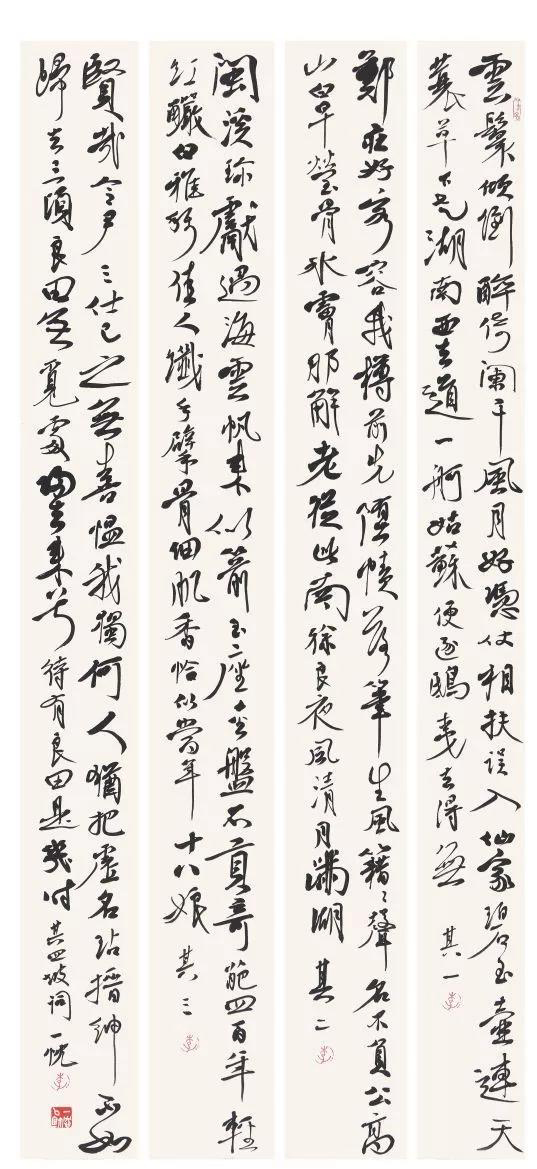 雲鬟傾倒醉倚闌干風月好憑仗相扶誤入仙家碧玉壺連天
衰草下走湖南西去道一舸姑蘇便逐鴟夷去得無 其一
鄭莊好客容我樽前先墮幘落筆生風籍籍聲名不負公高
山白早瑩骨冰膚那解老從此南徐良夜風清月滿湖 其二
閩溪珍獻過海雲帆來似箭玉座金盤不貢奇葩四百年輕
紅釀白雅稱佳人纖手擘骨細肌香恰似當年十八娘 其三
賢哉令尹三仕已之無喜慍我獨何人猶把虛名玷搢紳不如
歸去二頃良田無覓處歸去來兮待有良田是幾時 其四 坡詞 一